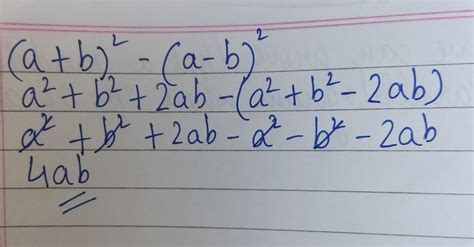 (a+b)² - (a-b)²
a² + b² + 2ab - (a² + b² - 2ab)
a² + b² + 2ab - a² - b² - 2ab
4ab